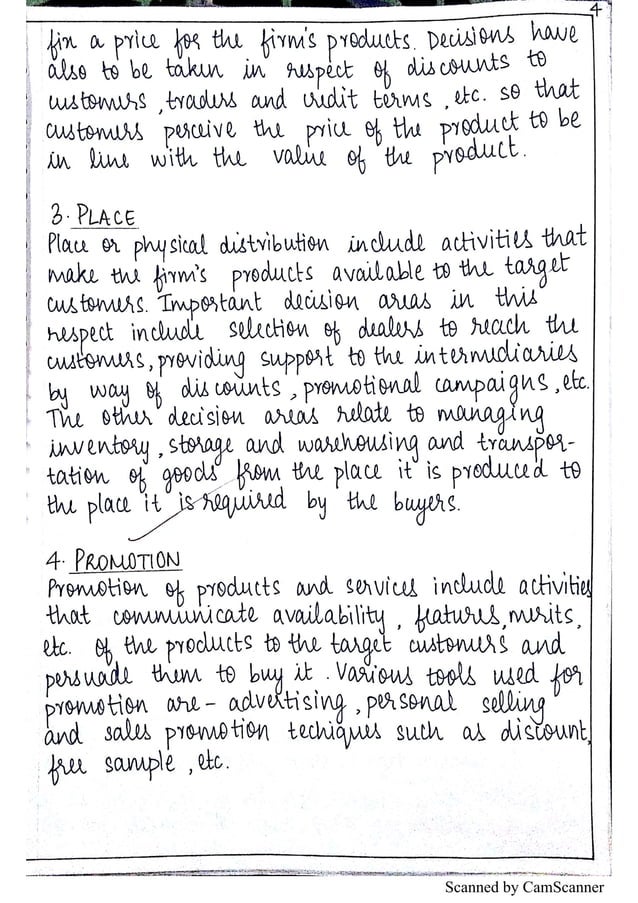 4
fix a price for the firm's products. Decisions have
also to be taken in respect of discounts to
customers, traders and credit terms, etc. so that
customers perceive the price of the product to be
in line with the value of the product.
3. PLACE
Place or physical distribution include activities that
make the firm's products available to the target
customers. Important decision areas in this
respect include selection of dealers to reach the
customers, providing support to the intermediaries
by way of discounts, promotional campaigns, etc.
The other decision areas relate to managing
inventory, storage and warehousing and transpor-
tation of goods from the place it is produced to
the place it is required by the buyers.
4. PROMOTION
Promotion of products and services include activities
that communicate availability, features, merits,
etc. of the products to the target customers and
persuade them to buy it. Various tools used for
promotion are - advertising, personal selling
and sales promotion techiques such as discount,
free sample, etc.
Scanned by CamScanner